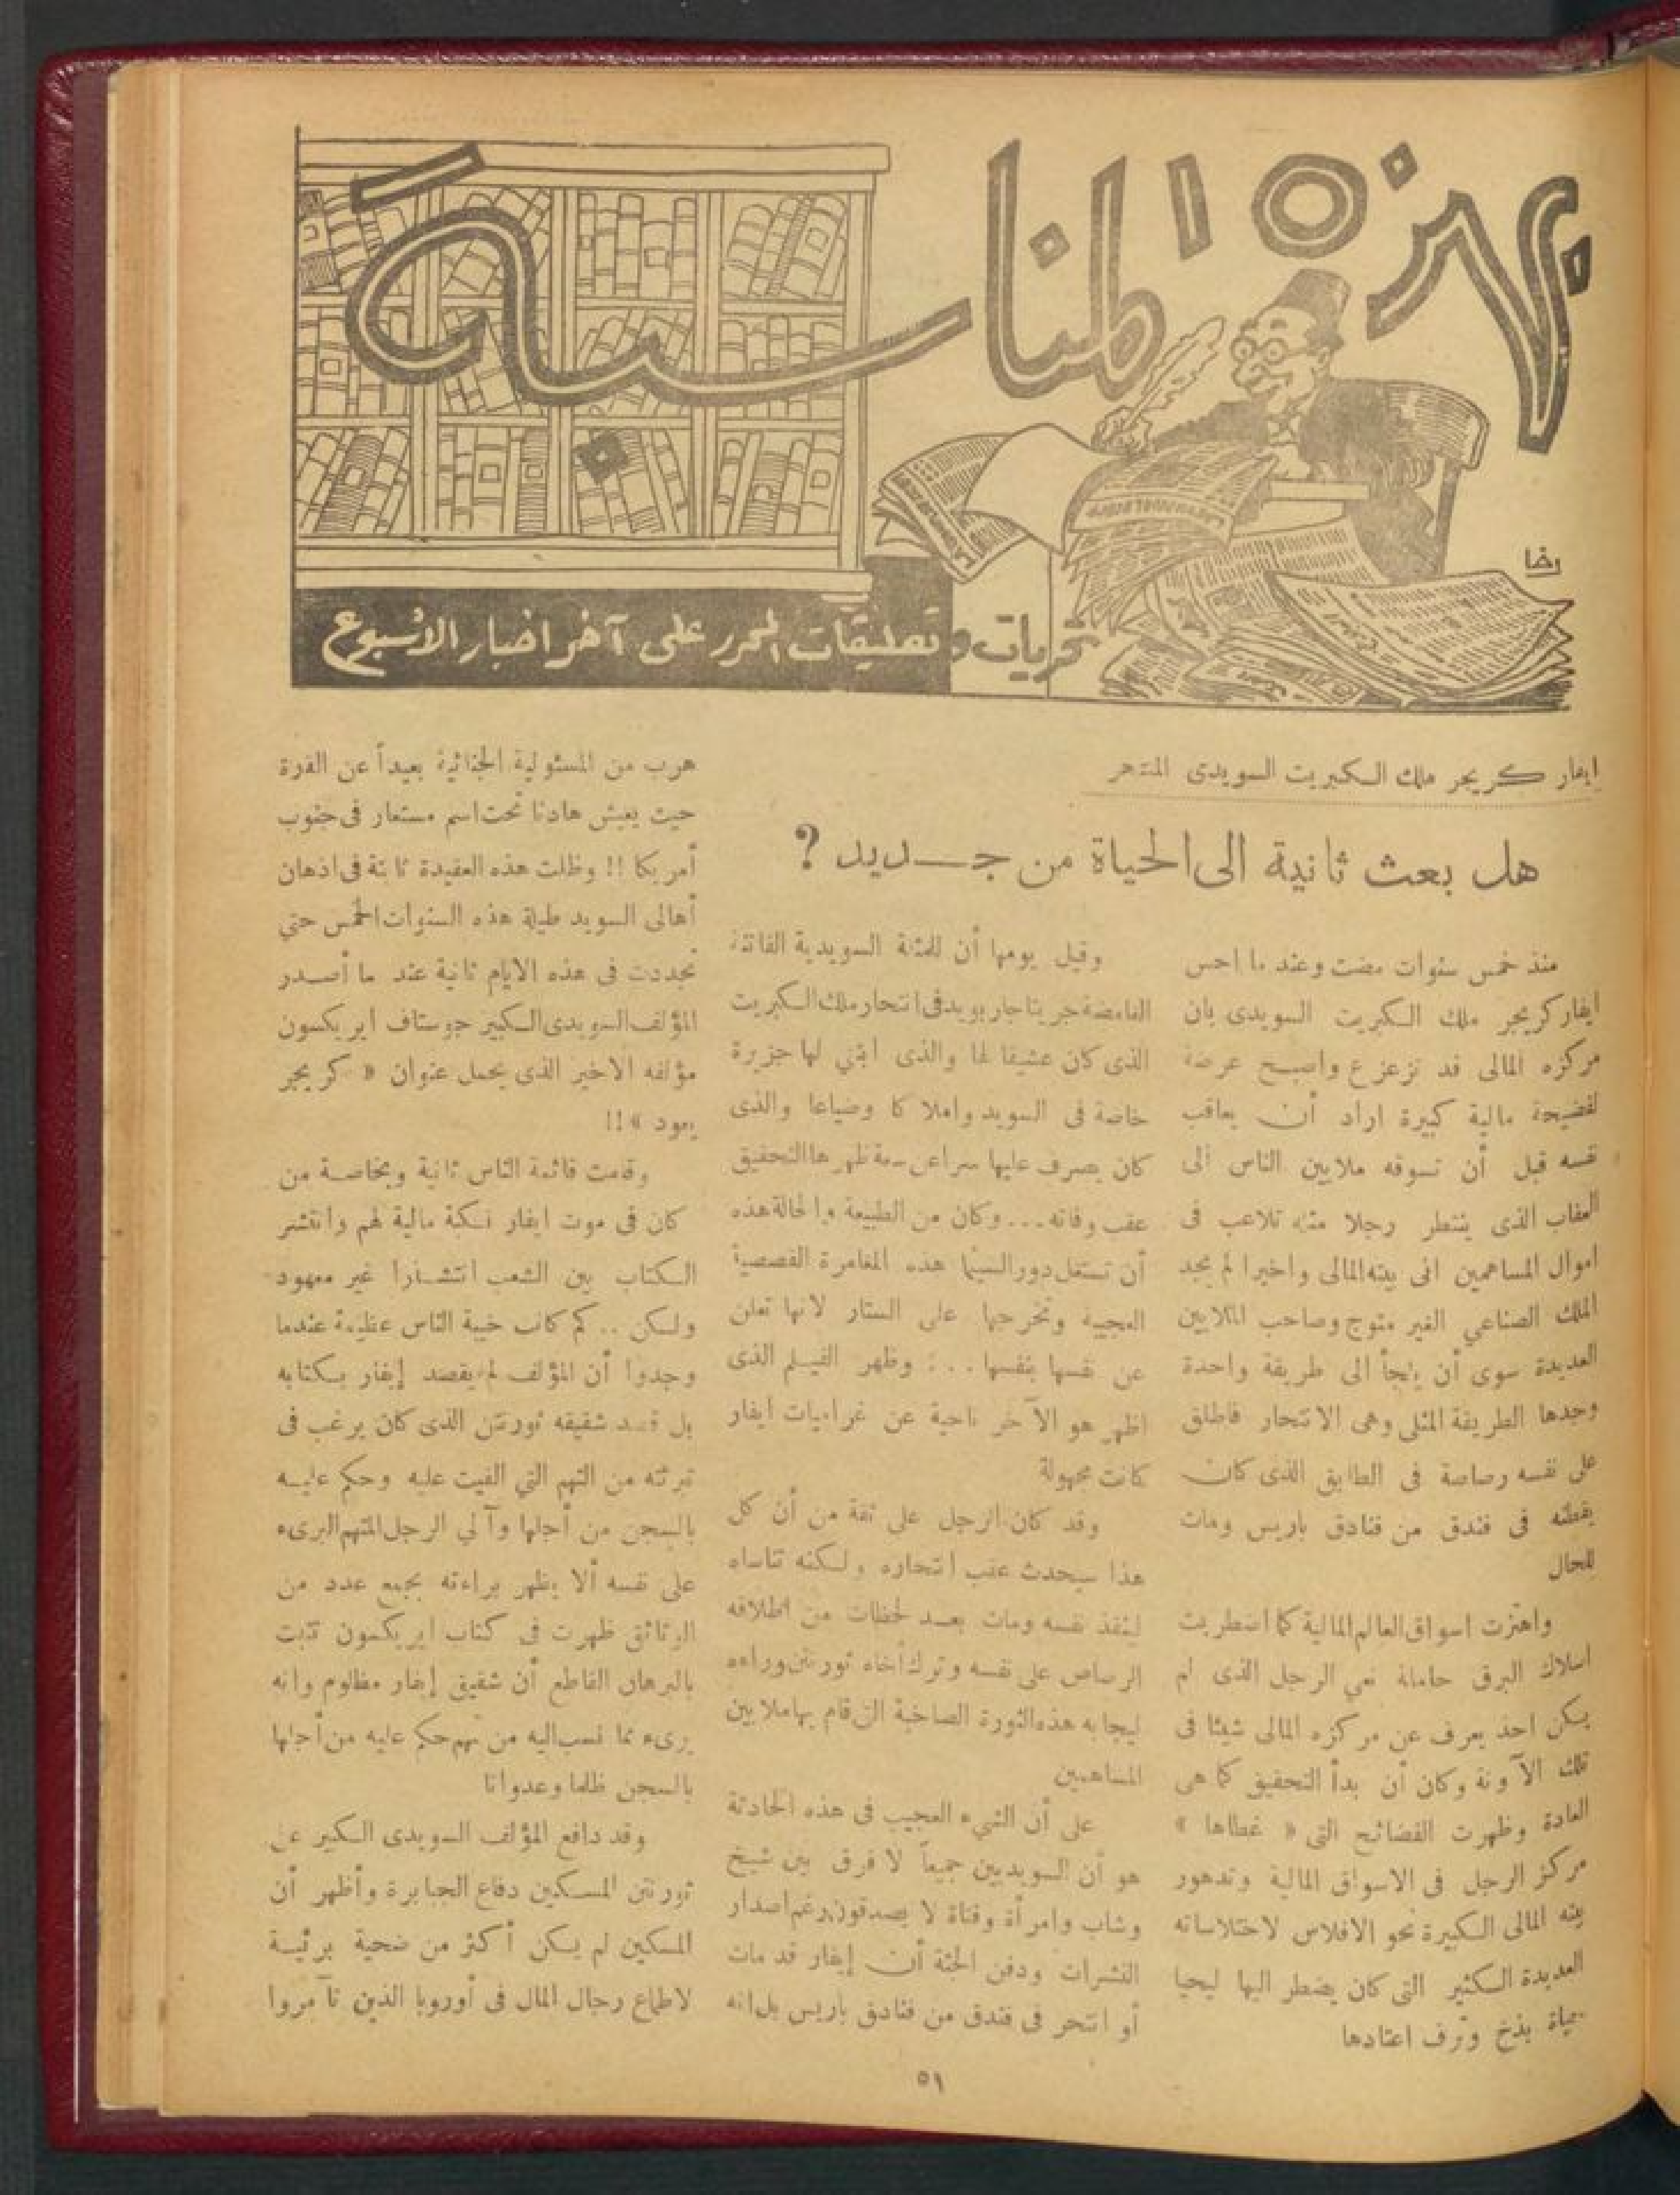 بهذه المناسبة
رخا
تحريات و تعليقات المحرر على آخر اخبار الاسبوع
ايفار كريجر ملك الكبريت السويدى المنتحر
هل بعث ثانية الى الحياة من جديد ؟
منذ خمس سنوات مضت وعند ما احس
ايفار كريجر ملك الكبريت السويدى بان
مركزه المالى قد تزعزع واصبح عرضة
لفضيحة مالية كبيرة اراد أن يعاقب
نفسه قبل أن تسوقه ملايين الناس الى
العقاب الذى ينتظر رجلا مثله تلاعب فى
اموال المساهمين فى بيته المالى واخيرا لم يجد
الملك الصناعي الغير متوج وصاحب الملايين
العديدة سوى أن يلجأ الى طريقة واحدة
وجدها الطريقة المثلى وهى الانتحار فاطلق
على نفسه رصاصة فى الطابق الذى كان
يقطنه فى فندق من فنادق باريس ومات
للحال
واهتزت اسواق العالم المالية كما اضطربت
اسلاك البرق حاملة نعي الرجل الذى لم
يكن احد يعرف عن مركزه المالى شيئا فى
تلك الآونة وكان أن بدأ التحقيق كما هى
العادة وظهرت الفضائح التى « غطاها »
مركز الرجل فى الاسواق المالية وتدهور
بيته المالى الكبيرة نحو الافلاس لاختلاساته
العديدة الكثير التى كان يضطر اليها ليحيا
حياة بذخ وترف اعتادها
وقيل يومها أن للفتنة السويدية الفاتنة
الغامضة جريتا جاربو يد فى انتحار ملك الكبريت
الذى كان عشيقا لها والذى ابتنى لها جزيرة
خاصة فى السويد واملاكا وضياعا والذى
كان يصرف عليها سرا عن ظهرها التحقيق
عقب وفاته ... وكان من الطبيعة والحالة هذه
أن تستغل دور السينما هذه المغامرة القصصية
العجيبة وتخرجها على الستار لانها تعلن
عن نفسها بنفسها .. : وظهر الفيلم الذى
اظهر هو الآخر ناحية عن غراميات ايفار
كانت مجهولة
وقد كان الرجل على ثقة من أن كل
هذا سيحدث عقب انتحاره ولكنه تناساه
لينقذ نفسه ومات بعد لحظات من اطلاقه
الرصاص على نفسه وترك أخاه تورنتن وراءه
ليجابه هذه الثورة الصاخبة التى قام بها ملايين
المساهمين
على أن الشيء العجيب فى هذه الحادثة
هو أن السويديين جميعاً لا فرق بين شيخ
وشاب وامرأة وفتاة لا يصدقون رغم اصدار
النشرات ودفن الجثة أن إيفار قد مات
أو انتحر فى فندق من فنادق باريس بل انه
هرب من المسئولية الجنائية بعيداً عن القارة
حيث يعيش هادئا تحت اسم مستعار فى جنوب
أمريكا !! وظلت هذه العقيدة ثابتة فى اذهان
أهالى السويد طيلة هذه السنوات الخمس حتي
تجددت فى هذه الايام ثانية عند ما أصدر
المؤلف السويدى الكبير جوستاف ايريكسون
مؤلفه الاخير الذى يحمل عنوان « كريجر
يعود » !!
وقامت قائمة الناس ثانية وبخاصة من
كان فى موت ايفار نكبة مالية لهم وانتشر
الكتاب بين الشعب انتشارا غير معهود
ولكن .. كم كانت خيبة الناس عظيمة عندما
وجدوا أن المؤلف لم يقصد إيفار بكتابه
بل قصد شقيقه تورنتن الذى كان يرغب فى
تبرئته من التهم التي القيت عليه وحكم عليه
بالسجن من أجلها وآلى الرجل المتهم البرىء
على نفسه ألا يظهر براءته بجمع عدد من
الوثائق ظهرت فى كتاب ايريكسون تثبت
بالبرهان القاطع أن شقيق إيفار مظلوم وانه
برىء مما نسب اليه من تهم حكم عليه من أجلها
بالسجن ظلما وعدوانا
وقد دافع المؤلف السويدى الكبير عن
تورنتن المسكين دفاع الجبابرة وأظهر أن
المسكين لم يكن أكثر من ضحية بريئة
لاطماع رجال المال فى أوروبا الذين تآمروا
٥١